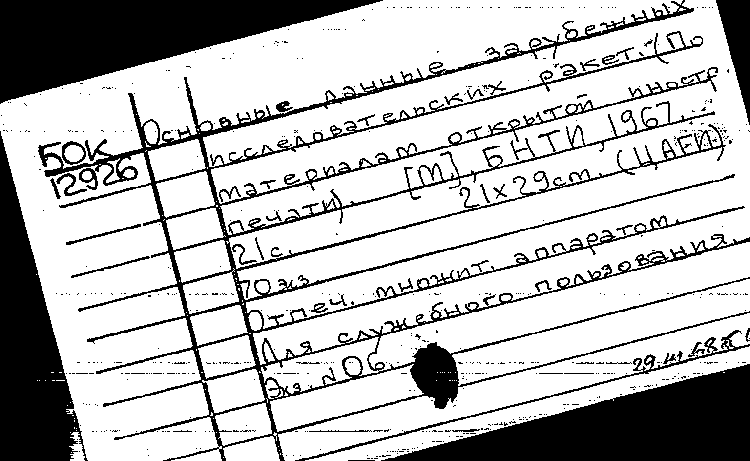 Основные данные зарубежных
исследовательских ракет. (По
материалам открытой иностр.
печати). [М.], БНТИ, 1967.
21с. 21x29см. (ЦАГИ).
70экз.
Отпеч. множит. аппаратом.
Для служебного пользования.
Экз. №06.
БОК
12926